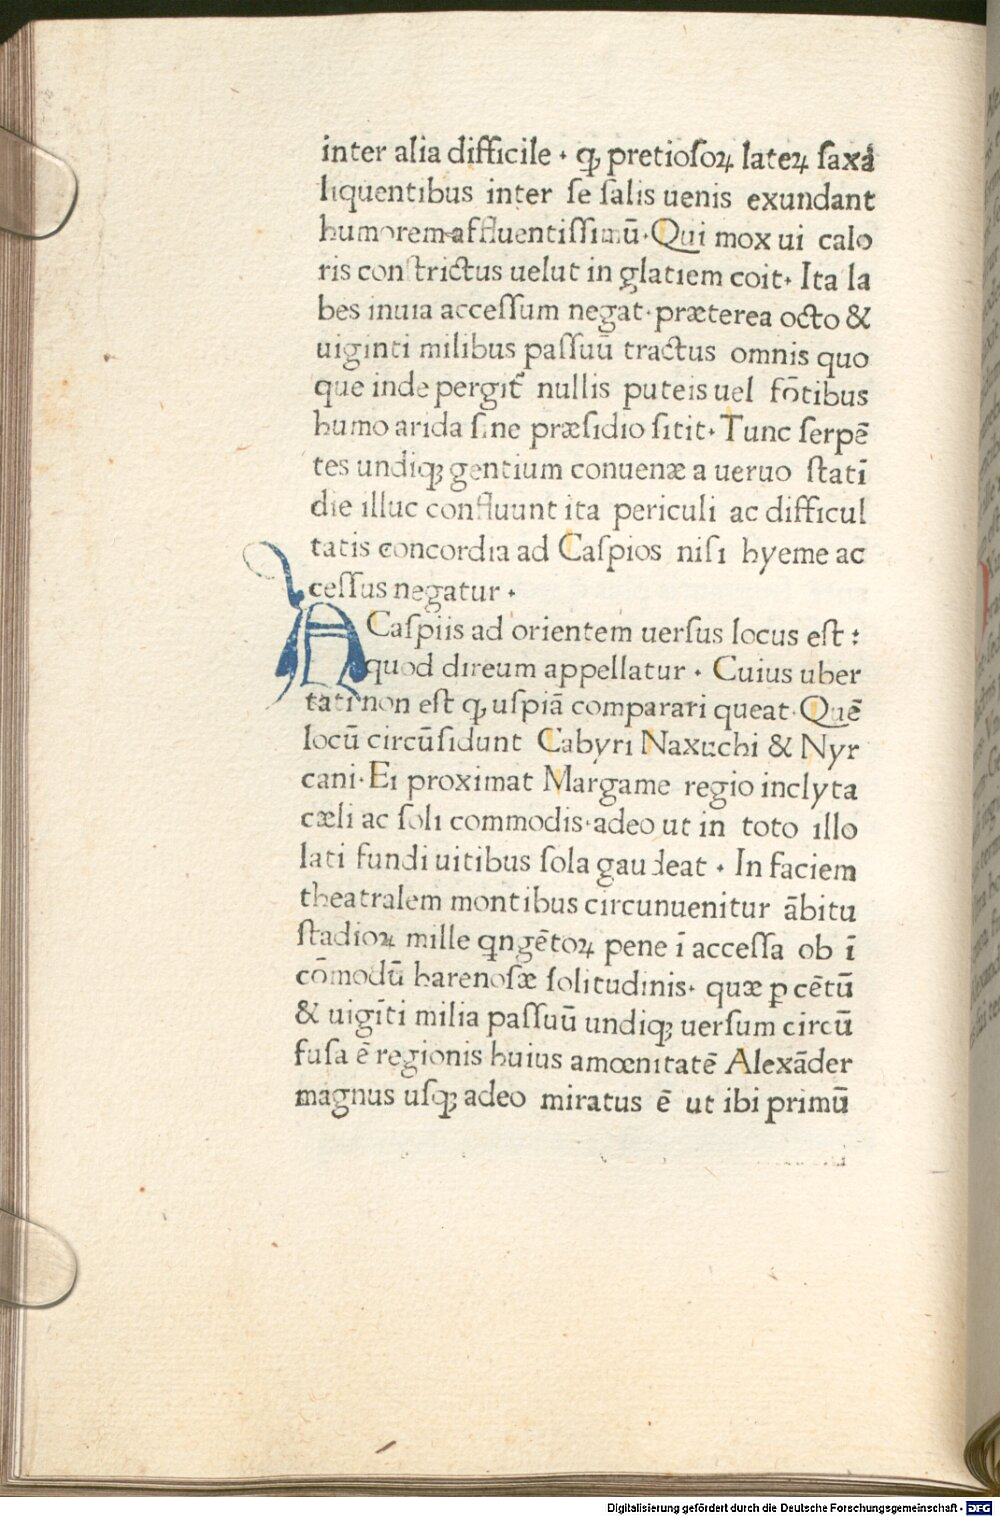 inter alia difficile · ꝙ pretioſoꝝ lateꝝ ſaxa
liquentibus inter ſe ſalis uenis exundant
humorem affluentiſſimū· Qui mox ui calo
ris conſtrictus uelut in glatiem coit· Ita la
bes inuia acceſſum negat· præterea octo &
uiginti milibus paſſuū tractus omnis quo
que inde pergit᷑ nullis puteis uel fōtibus
humo arida ſine præſidio ſitit· Tunc ſerpē
tes undiqꝫ gentium conuenæ a ueruo ſtatī
die illuc confluunt ita periculi ac difficul
tatis concordia ad Caſpios niſi hyeme ac
ceſſus negatur ·
A Caſpiis ad orientem uerſus locus eſt :
quod direum appellatur · Cuius uber
tati non eſt ꝙ uſpiā comparari queat· Quē
locū circūſidunt Cabyri Naxuchi & Nyr
cani· Ei proximat Margame regio inclyta
cæli ac ſoli commodis· adeo ut in toto illo
lati fundi uitibus ſola gaudeat · In faciem
theatralem montibus circunuenitur ābitu
ſtadioꝝ mille qngētoꝝ pene ī acceſſa ob ī
cōmodū harenoſæ ſolitudinis· quæ ꝑ cētū
& uigīti milia paſſuū undiqꝫ uerſum circū
fuſa ē regionis huius amœnitatē Alexāder
magnus uſqꝫ adeo miratus ē ut ibi primū
Digitalisierung gefördert durch die Deutsche Forschungsgemeinschaft - DFG